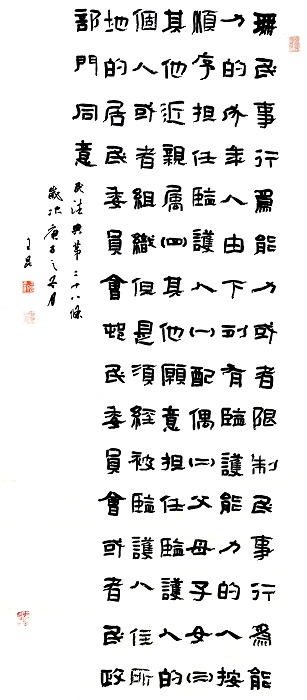 無民事行爲能力或者限制民事行爲能
力的成年人由下列有監護能力的人按
順序担任監護人(一)配偶(二)父母子女(三)
其他近親属(四)其他願意担任監護人的
個人或者組織但是須經被監護人住所
地的居民委員會邨民委員會或者民政
部門同意
民法典第二十八條
歲次庚子之冬月